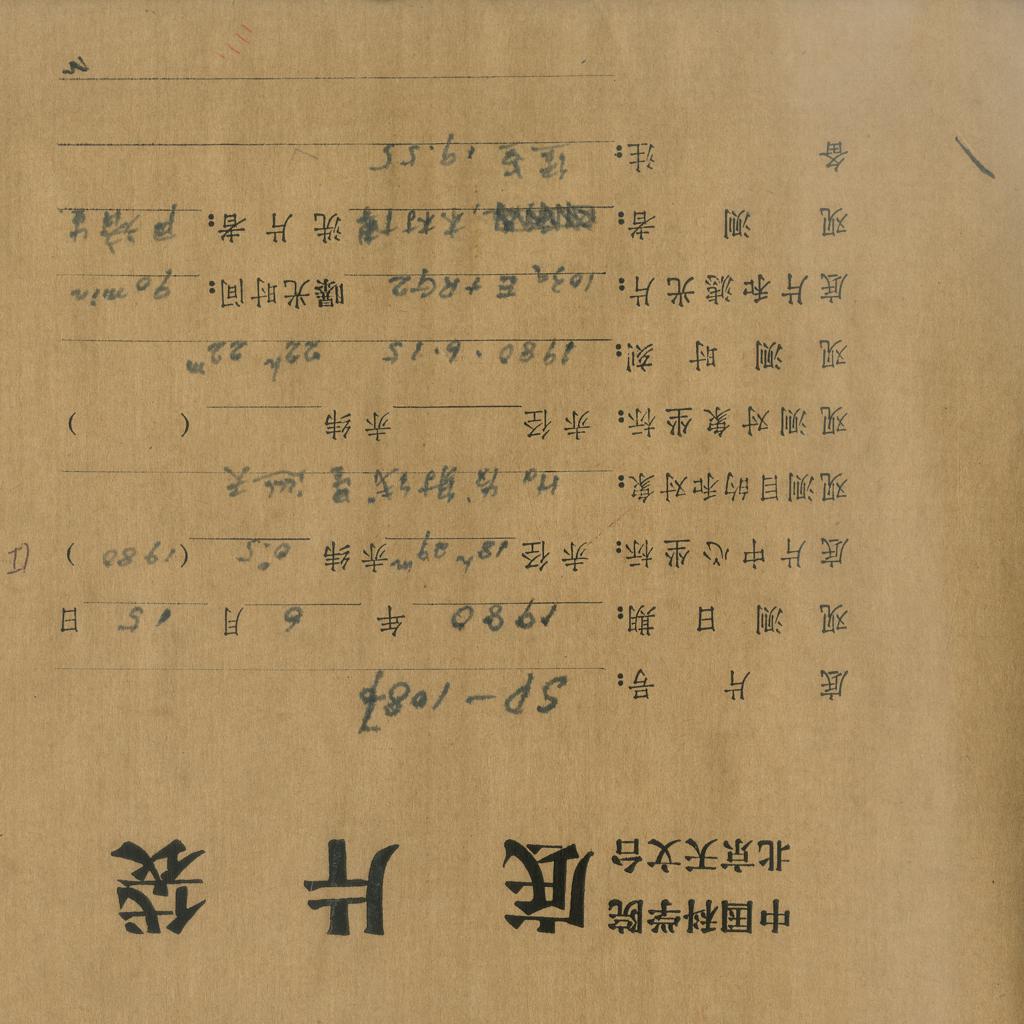 中国科学院
北京天文台
底片袋
底片号: SP-108
观测日期: 1980年6月15日
底片中心坐标: 赤径 18ʰ29ᵐ 赤纬 0°.5 (1980)
观测目的和对象: Hα发射线星
观测对象坐标: 赤径 赤纬 ( )
观测时刻: 1980.6.15 22ʰ22ᵐ
底片和滤光片: 103aE+RG2 曝光时间: 90min
观测者: 洗片者:
备注: 19.55